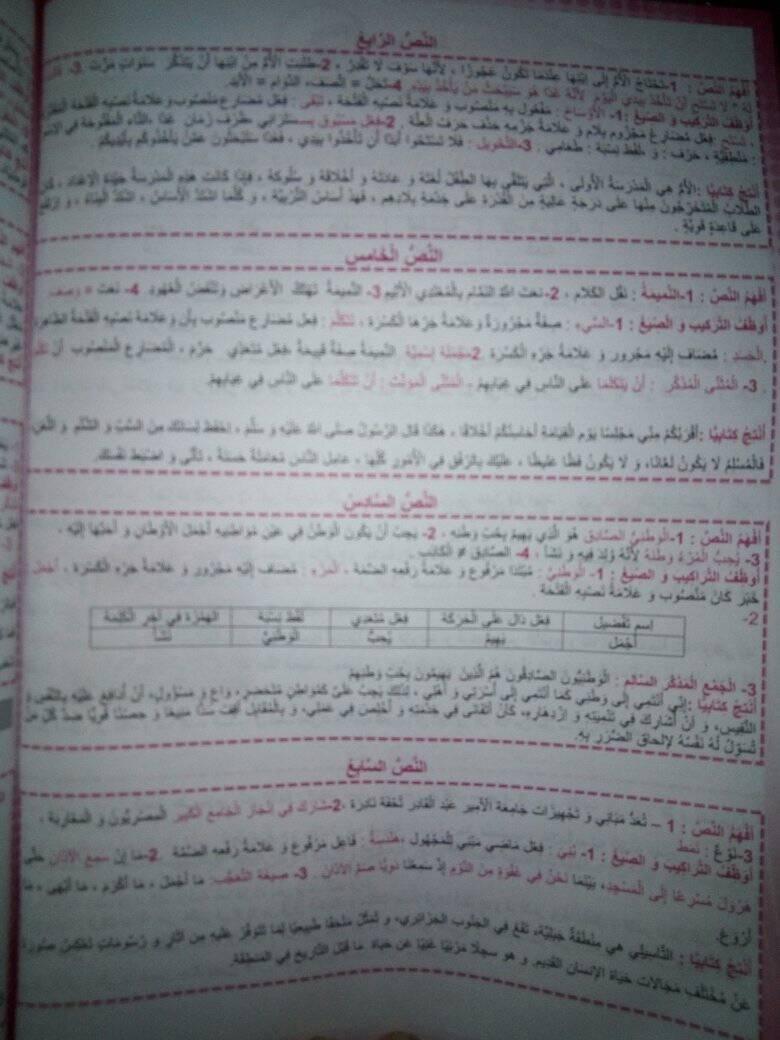 النص الرابع
أفهم النص : 1- تحتاج الأم إلى ابنها عندما تكون عجوزا ، لأنها سوف لا تقدر ، 2- طلبت الأم من ابنها أن يتذكر سنوات مرت 3-
له " لا تستح أن تأخذ بيدي اليوم لأنه غدا هو سيبحث من يأخذ بيده 4-
أوظف التركيب و الصيغ : 1- الأوساخ : مفعول به منصوب و علامة نصبه الفتحة ، تبقى : فعل مضارع منصوب وعلامة نصبه الفتحة
تستح : فعل مضارع مجزوم بلام و علامة جزمه حذف حرف العلة . 2- فعل مسبوق بسـ: ستراني ظرف زمان غدا
: منطقية ، حرف : و ، لفظ نسبة : طعامي . 3- التحويل : فلا تستحوا أبدا أن تأخذوا بيدي ، فغدا ستبحثون عمن يأخذكم بأيديكم .
أنتج كتابيا : الأم هي المدرسة الأولى ، التي يتلقى بها الطفل لغته و عادته و أخلاقه و سلوكه ، فإذا كانت هذه المدرسة جيدة الإعداد ، كان
الطلاب المتخرجون منها على درجة عالية من القدرة على خدمة بلادهم ، فهذ أساس التربية ، و كلما اشتد الأساس ، اشتد البناء ،
على قاعدة قوية .
النص الخامس
أفهم النص : 1- النميمة : نقل الكلام ، 2- نعت الله النمام بالمعتدي الأثيم 3- النميمة تهتك الأعراض وتنقض العهود 4- نعت = وصف
أوظف التركيب و الصيغ : 1- السيء : صفة مجرورة وعلامة جرها الكسرة ، تتكلم : فعل مضارع منصوب بأن وعلامة نصبه الفتحة الظاهرة
الحسد : مضاف إليه مجرور و علامة جره الكسرة 2- جملة اسمية النميمة صفة قبيحة ، فعل متعدي حرم ، المضارع المنصوب أن
3- المثنى المذكر : أن يتكلما على الناس في غيابهم ، المثنى المؤنث : أن تتكلما على الناس في غيابهم .
أنتج كتابيا : أقربكم مني مجلسا يوم القيامة أحاسنكم أخلاقا ، هكذا قال الرسول صلى الله عليه و سلم ، احفظ لسانك من السب و الشتم و اللعن
فالمسلم لا يكون لعانا ، و لا يكون فظا غليظا ، عليك بالرفق في الأمور كلها ، عامل الناس معاملة حسنة ، تأنى و اضبط نفسك .
النص السادس
أفهم النص : 1- الوطني الصادق هو الذي يهيم بحب وطنه ، 2- يجب أن يكون الوطن في عين مواطنيه أجمل الأوطان و أحبها إليه .
3- يحب المرء وطنه لأنه ولد فيه و نشأ ، 4- الصادق ≠ الكاذب .
أوظف التراكيب و الصيغ : 1- الوطني : مبتدأ مرفوع و علامة رفعه الضمة ، المرء : مضاف إليه مجرور و علامة جره الكسرة ، أجمل
خبر كان منصوب و علامة نصبه الفتحة .
2-
اسم تفضيل فعل دال على الحركة فعل متعدي لفظ نسبة الهمزة في آخر الكلمة
أجمل يهيم يحب الوطني نشأ
3- الجمع المذكر السالم : الوطنيون الصادقون هم الذين يهيمون بحب وطنهم
أنتج كتابيا : إني أنتمي إلى وطني كما أنتمي إلى أسرتي و أهلي ، لذلك يجب علي كمواطن متحضر ، واع و مسؤول، أن أدافع عليه بالنفس و
النفيس، و أن أشارك في تنميته و ازدهاره، كأن أتفانى في خدمته و أخلص في عملي، و بالمقابل أقف سدا منيعا و حصنا قويا ضد كل من
تسول له نفسه لإلحاق الضرر به.
النص السابع
أفهم النص : 1 – تعد مباني و تجهيزات جامعة الأمير عبد القادر تحفة نادرة ، 2- شارك في إنجاز الجامع الكبير المصريون و المغاربة ،
3- نوع : نمط
أوظف التراكيب و الصيغ : 1- بني : فعل ماضي مبني للمجهول ، هندسة : فاعل مرفوع و علامة رفعه الضمة . 2- ما إن سمع الآذان حتى
هرول مسرعا إلى المسجد، بينما نحن في غفوة من النوم إذ سمعنا دويا صم الآذان . 3- صيغة التعجب: ما أجمل ، ما أكرم ، ما أبهى ، ما
أروع.
أنتج كتابيا : التاسيلي هي منطقة جبلية، تقع في الجنوب الجزائري، و تمثل متحفا طبيعيا لما تتوفر عليه من آثار و رسومات تعكس صورة
عن مختلف مجالات حياة الإنسان القديم و هو سجلا مرئيا غنيا عن حياة ما قبل التاريخ في المنطقة.